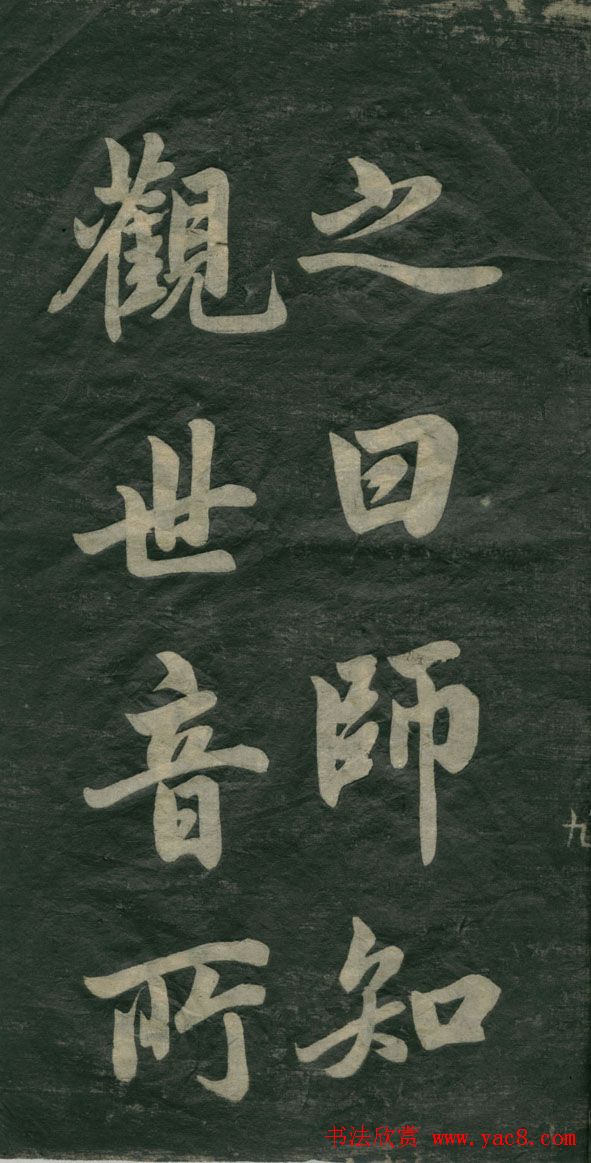 之曰師知
觀世音所
九
书法欣赏 www.yac8.com